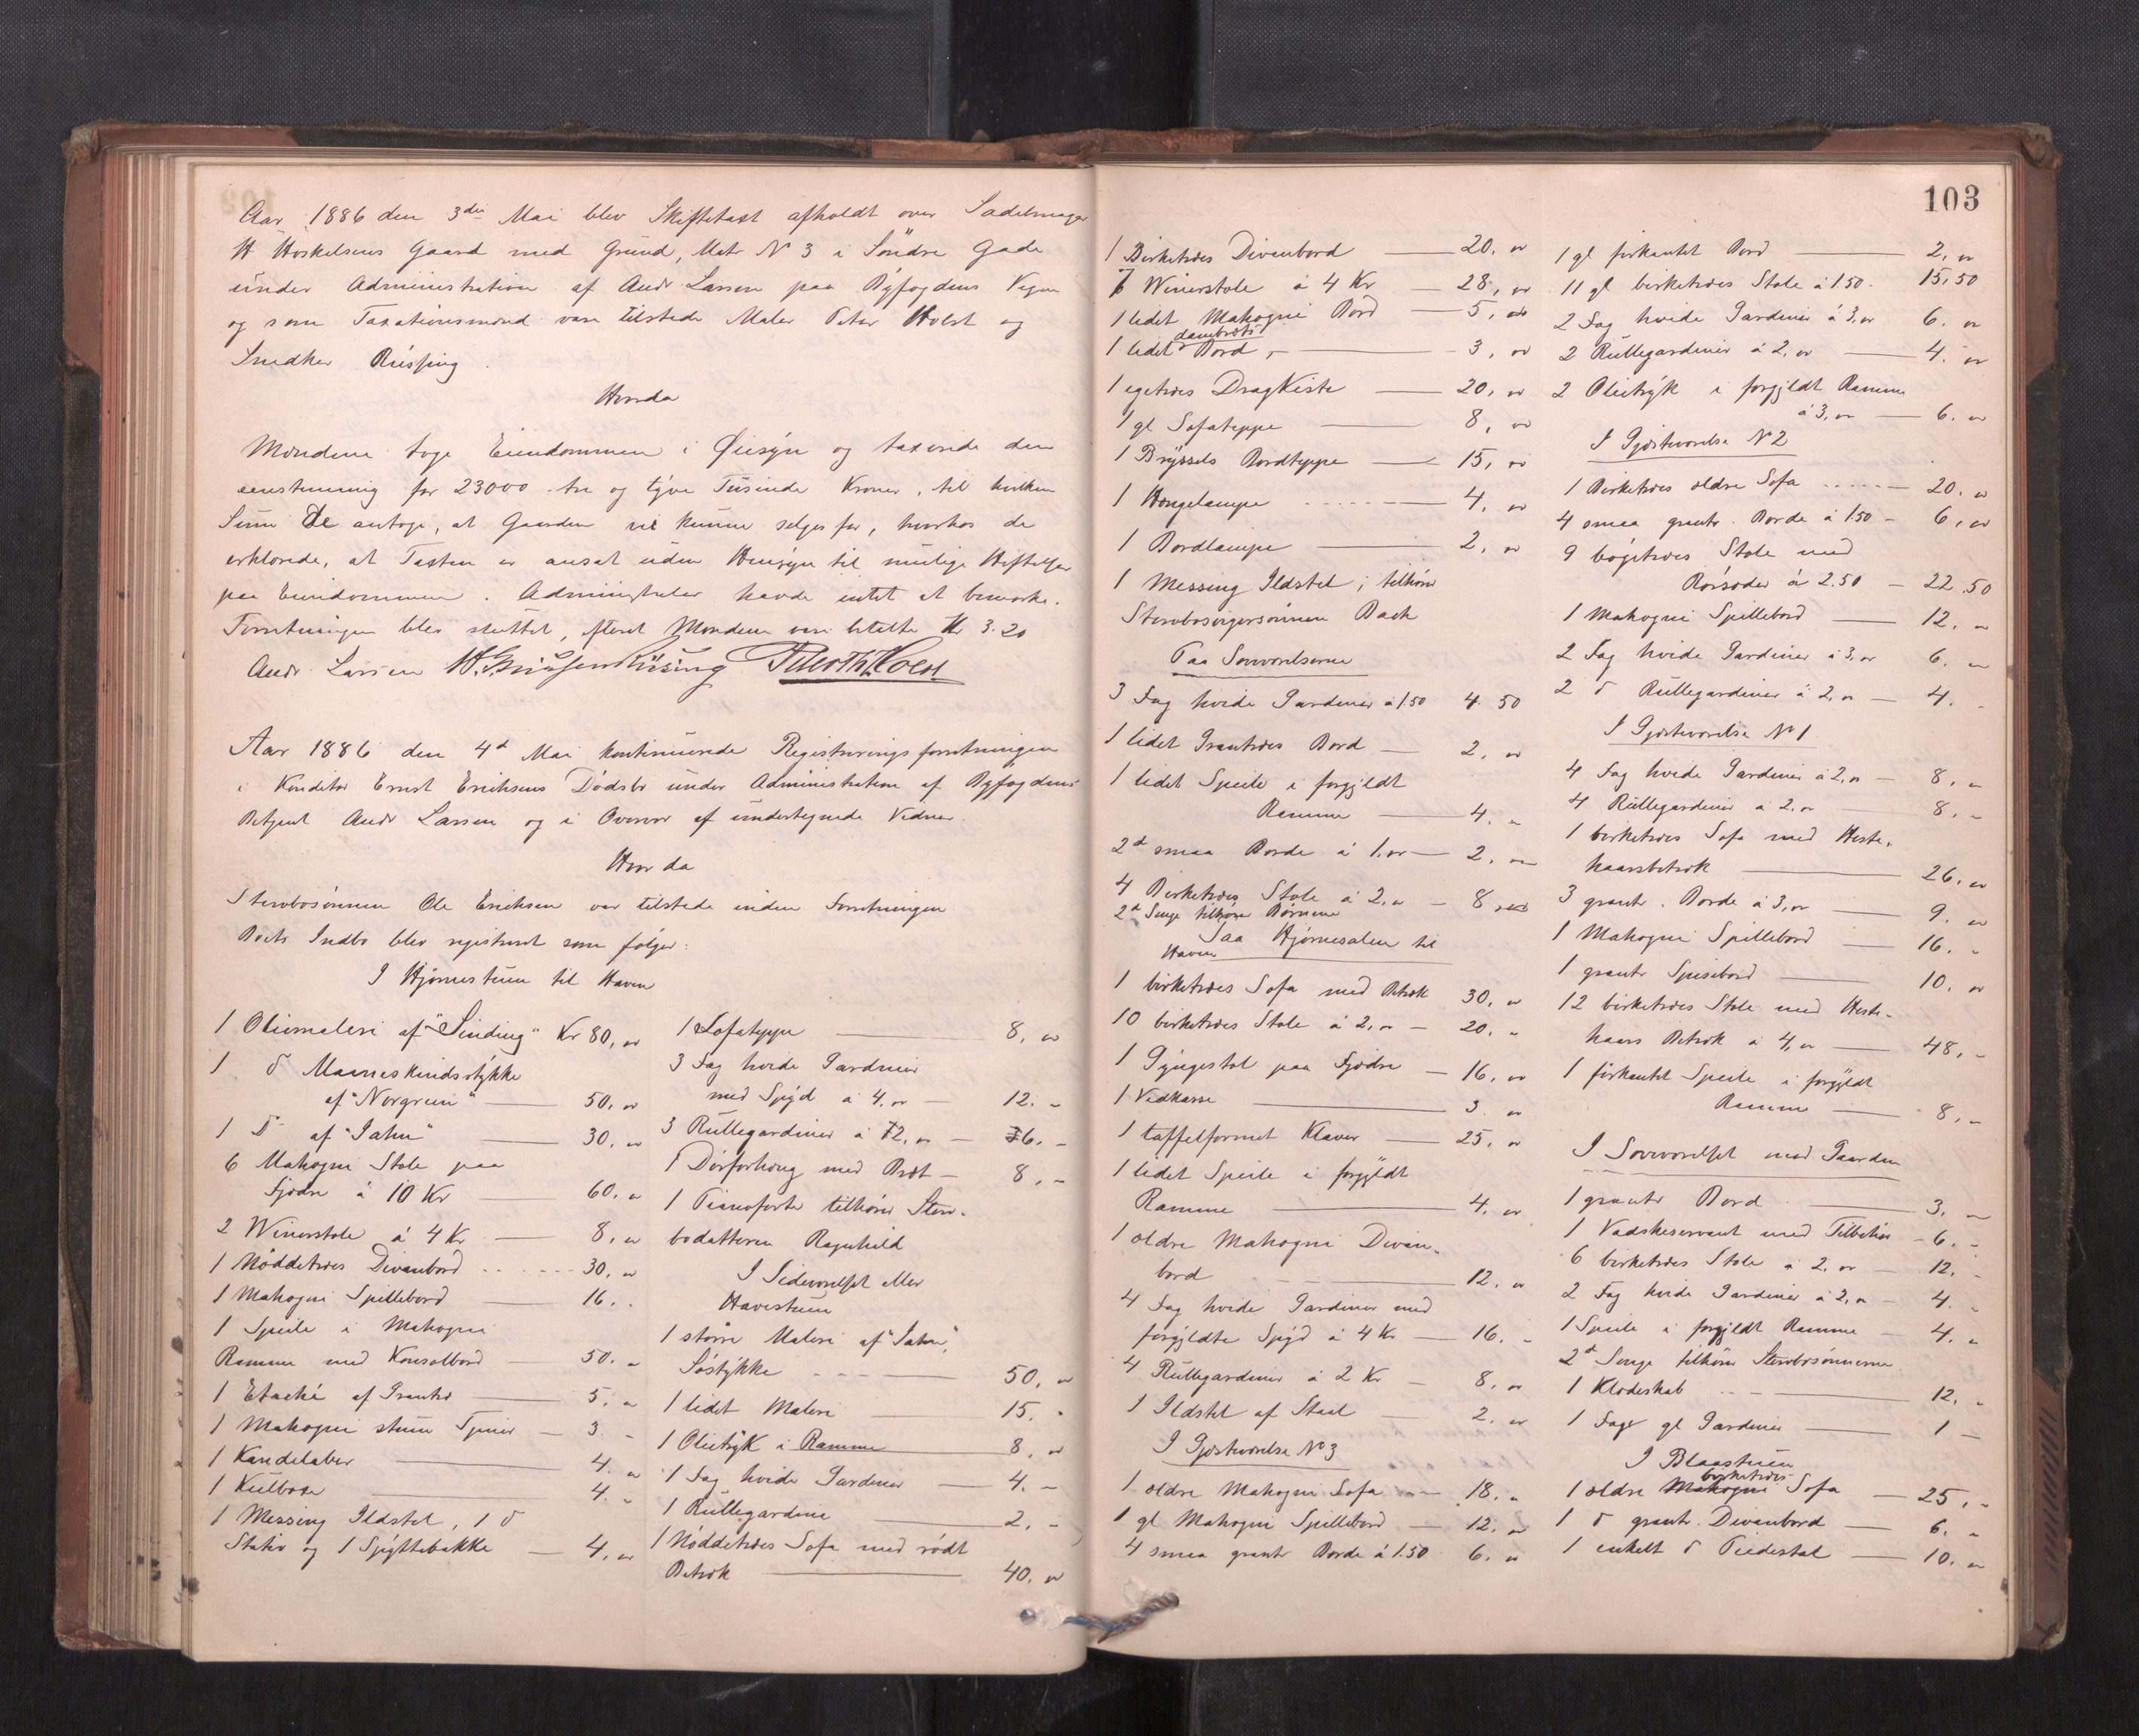 Aar 1886 den 3die Mai blev Skiftetaxt afholdt over Sadelmager
H Hoskelsens Gaard med Grund, Matr N 3 i Söndre Gade
under Administration af Andr Larsen paa Byfogdens Vegne
og som Taxationsmænd vare tilstede Maler Peter Holst og
Snedker
Hvorda
Mændene toge Eiendommen i Øiesyn og taxerede den
eenstemmig for 23000 - tre og tyve Tusinde Kroner, til hvilken
Sum de antoge, at Gaarden vil kunne selges for, hvorhos de
erklærede, at Taxten er ansat uden Hensyn til mulige Heftelser
paa Eiendommen. Administrator havde intet at bemærke.
Forretningen blev sluttet, efterat Mændene vare betalte Kr 3.20
Andr. Larsen
Aar 1886 den 4d Mai kontinuerede Registreringsforretningen
i Konditor Ernst Erichsens Dödsbo under Administration af Byfogdens
Betjent Andr Larsen og i Overvær af undertegnede Vidner.
Hvor da
Stervbosönnen Ole Erichsen var tilstede under Forretningen
Boets Indbo blev registreret som fölger:
I Hjörnestuen til Haven
1 Oliemaleri af "Sinding" Kr 80, "
1 d Maaneskindsstykke
af "Norgren" 50, "
1 D af "Jahn" 30, "
6 Mahogni Stole paa
Fjædre á 10 Kr 60. "
2 Wienerstole á 4 Kr 8, "
1 Nöddetræes Divanbord 30, "
1 Mahogni Spillebord 16. "
1 Speile i Mahogni
Ramme med Konsolbord 50. "
1 Etaché af Grantræ 5. "
1 Mahogni stum Tjener 3 "
1 Kandelaber 4. "
1 Kulboxe 4. "
1 Messing Ildstel, 1 d
Stativ og 1 Spyttebakke 4, "
1 Sofateppe 8, "
3 Fag hvide Gardiner
med Spyd á 4. " 12. "
3 Rullegardiner á 2, " 6. "
1 Dörforhæng med Bræt 8, "
1 Pianoforte tilhörer Sterv-
bodatteren Ragnhild
I Sideværelset eller
Havestuen
1 större Maleri af "Jahn",
Söstykke 50, "
1 lidet Maleri 15. "
1 Olietryk i Ramme 8, "
1 Fag hvide Gardiner 4. "
1 Rullegardine 2. "
1 Nöddetræes Sofa med rödt
Betræk 40. "
103
1 Birketræes Divanbord 20. "
7 Wienerstole á 4 Kr 28, "
1 lidet Mahogni Bord 5, "
dambræts
1 lidet Bord, 3, "
1 egetræes DragKiste 20, "
1 gl Sofateppe 8, "
1 Bryssels Bordteppe 15, "
1 Hængelampe 4, "
1 Bordlampe 2, "
1 Messing Ildstel, tilhörer
Paa Soveværelserne
3 Fag hvide Gardiner á 1.50 4 50
1 lidet Grantræes Bord 2, "
1 lidet Speile i forgyldt
Ramme 4. "
2d smaa Borde á 1. " 2. "
4 Birketræes Stole á 2. " 8 "
2d Senge tilhörer Börnene
Paa Hjörnesalen til
Haven
1 birketræes Sofa med Betræk 30, "
10 birketræes Stole á 2, " 20. "
1 Gyngestol paa Fjædre 16, "
1 Vedkasse 3. "
1 taffelformet Klaver 25, "
1 lidet Speile i forgyldt
Ramme 4. "
1 ældre Mahogni Divan-
bord 12. "
4 Fag hvide Gardiner med
forgyldte Spyd á 4 Kr 16. "
4 Rullegardiner á 2 Kr 8, "
1 Ildstel af Staal 2. "
I Gjæsteværelse N 3
1 ældre Mahogni Sofa 18. "
1 gl Mahogni Spillebord 12. "
4 smaa grantr Borde á 1.50 6. "
1 gl firkantet Bord 2, "
11 gl birketræes Stole á 1.50 15,50
2 Fag hvide Gardiner á 3, " 6. "
2 Rullegardiner á 2, " 4. "
2 Olietryk i forgyldt Ramme
á 3, " 6. "
I Gjæsteværelse N 2
1 Birketræes ældre Sofa 20. "
4 smaa grantr. Borde á 1.50 6, "
9 bögetræes Stole med
Rörsæder á 2.50 22.50
1 Mahogni Spillebord 12. "
2 Fag hvide Gardiner á 3, " 6. "
2 d Rullegardiner á 2, " 4. "
I Gjæsteværelse N 1
4 Fag hvide Gardiner á 2, " 8, "
4 Rullegardiner á 2. " 8. "
1 birketræes Sofa med Heste-
haarsbetræk 26, "
3 grantr. Borde á 3, " 9. "
1 Mahogni Spillebord 16. "
1 grantr Spisebord 10. "
12 birketræes Stole med Heste-
haars Betræk á 4, " 48, "
1 firkantet Speile i forgyldt
Ramme 8, "
I Soveværelset mod Gaarden
1 grantr Bord 3, "
1 Vadskeservant med Tilbehör 6. "
6 birketræes Stole á 2. " 12, "
2 Fag hvide Gardiner á 2, " 4. "
1 Speile i forgyldt Ramme 4. "
2d Senge tilhörer Stervbosönnerne.
1 Klædeskab 12. "
1 Fag gl Gardiner 1 "
I Blaastuen
birketræes
1 ældre Mahogni Sofa 25, "
1 d grantr. Divanbord 6. "
1 enkelt d Piedestal 10. "